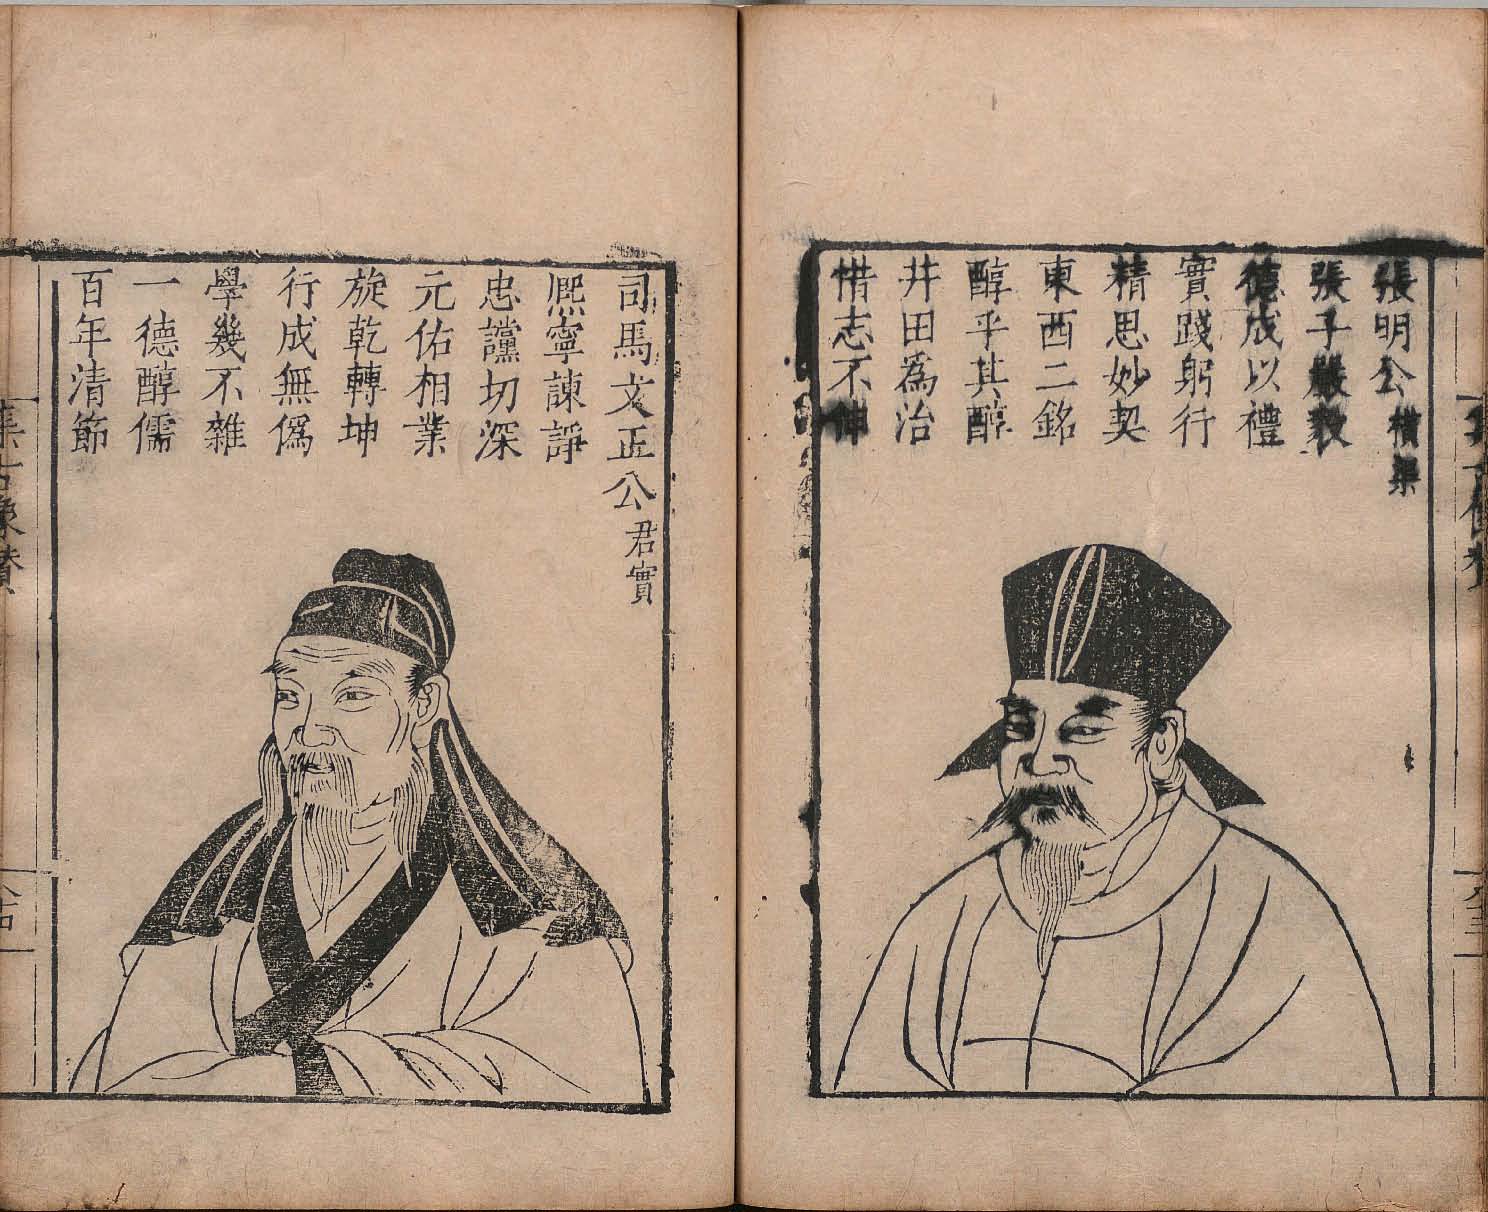 張明公橫渠
張子嚴毅
德成以禮
實踐躬行
精思妙契
東西二銘
醇乎其醇
井田為治
惜志不伸
司馬文正公君實
熈寧諫諍
忠讜切深
元佑相業
旋乾轉坤
行成無偽
學幾不雜
一德醇儒
百年清節
集古像賛